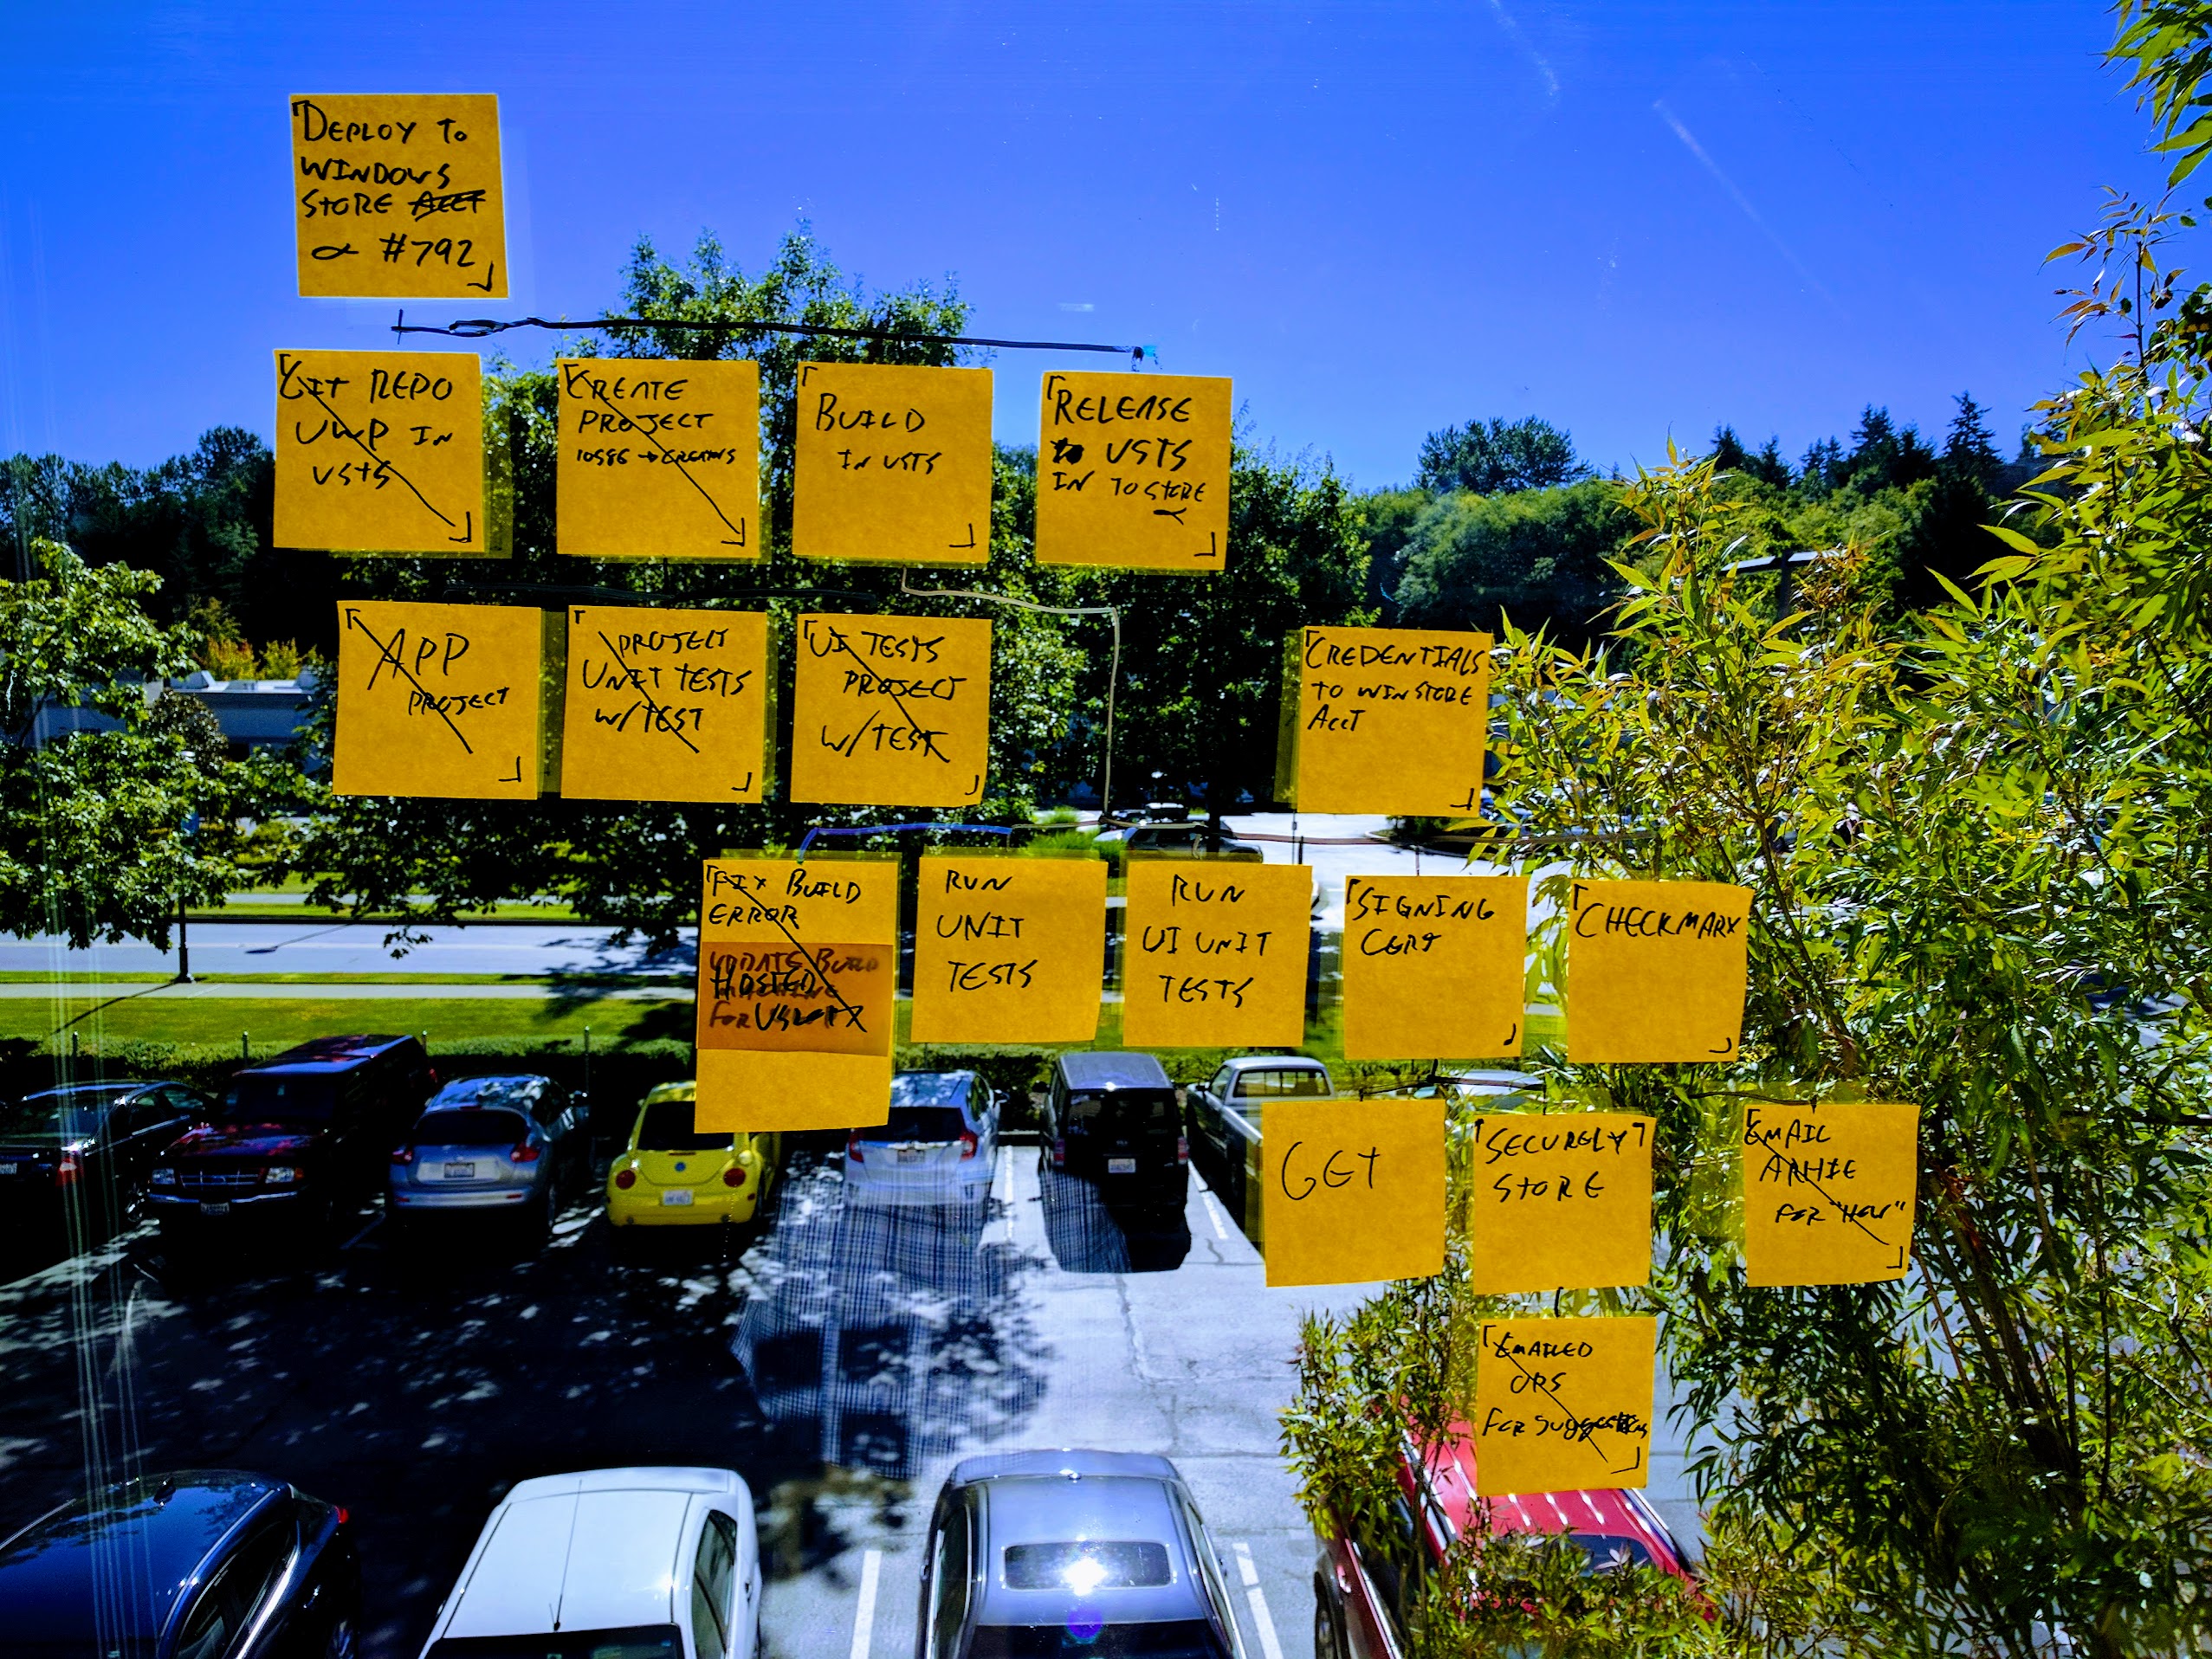 DEPLOY TO
WINDOWS
STORE ACCT
#792
GIT REPO
UWP IN
VSTS
CREATE
PROJECT
10586 → CREATORS
BUILD
IN VSTS
RELEASE
VSTS
IN TO STORE
APP
PROJECT
PROJECT
UNIT TESTS
W/TEST
UI TESTS
PROJECT
W/TEST
CREDENTIALS
TO WIN STORE
ACCT
FIX BUILD
ERROR
UPDATE BUILD
HOSTED
FOR
RUN
UNIT
TESTS
RUN
UI UNIT
TESTS
SIGNING
CERT
CHECKMARX
GET
SECURELY
STORE
EMAIL
FOR "HOW"
EMAILED
FOR SUGGESTIONS